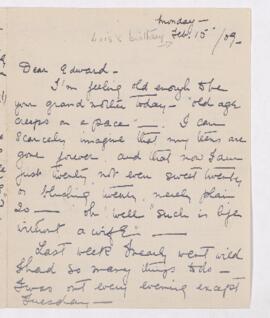 Monday –
Lois's birthday
Feb. 15" /09.
Dear Edward –
I'm feeling old enough to be
your grandmother today – "old age
creeps on a pace" – I can
scarcely imagine that my teens are
gone forever and that now I am
just twenty, not even sweet twenty
or blushing twenty, merely plain
20 – oh well "such is life
without a wife" –
Last week I nearly went wild
I had so many things to do –
I was out every evening except
Tuesday –